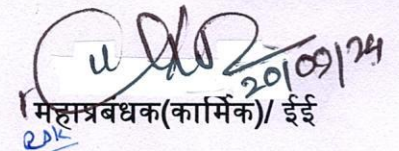 20/09/24
महाप्रबंधक(कार्मिक)/ ईई